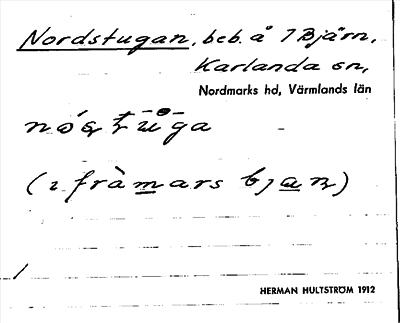 Nordstugan, beb. å 7 Bjärn,
Karlanda sn,
Nordmarks hd, Värmlands län
(ɩ fràmars bjan)
HERMAN HULTSTRÖM 1912